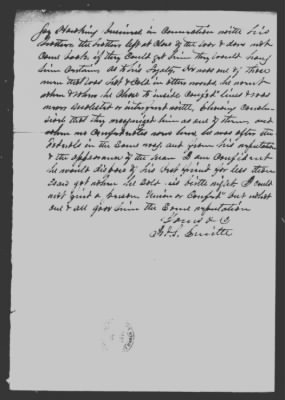 Jay Hawking business in connection with his
brothers the brothers left at close of the war & dare not
come back, if they could get him they would hang
him certain, as to his loyalty. He was one of those
men that was hot & cold in other words, he went
when & where he chose to inside Confed lines & was
never molested or interfered with, showing conclu-
sively that they recognized him as one of them, and
when no Confederates were here he was after the
Federals in the same way, and from his reputation
& the appearance of the man I am confident
he would dispose of his best friend for less than
Esau got when he sold his birth right. I could
not find a person Union or Confed but what
one & all gave him the same reputation
Yours &c